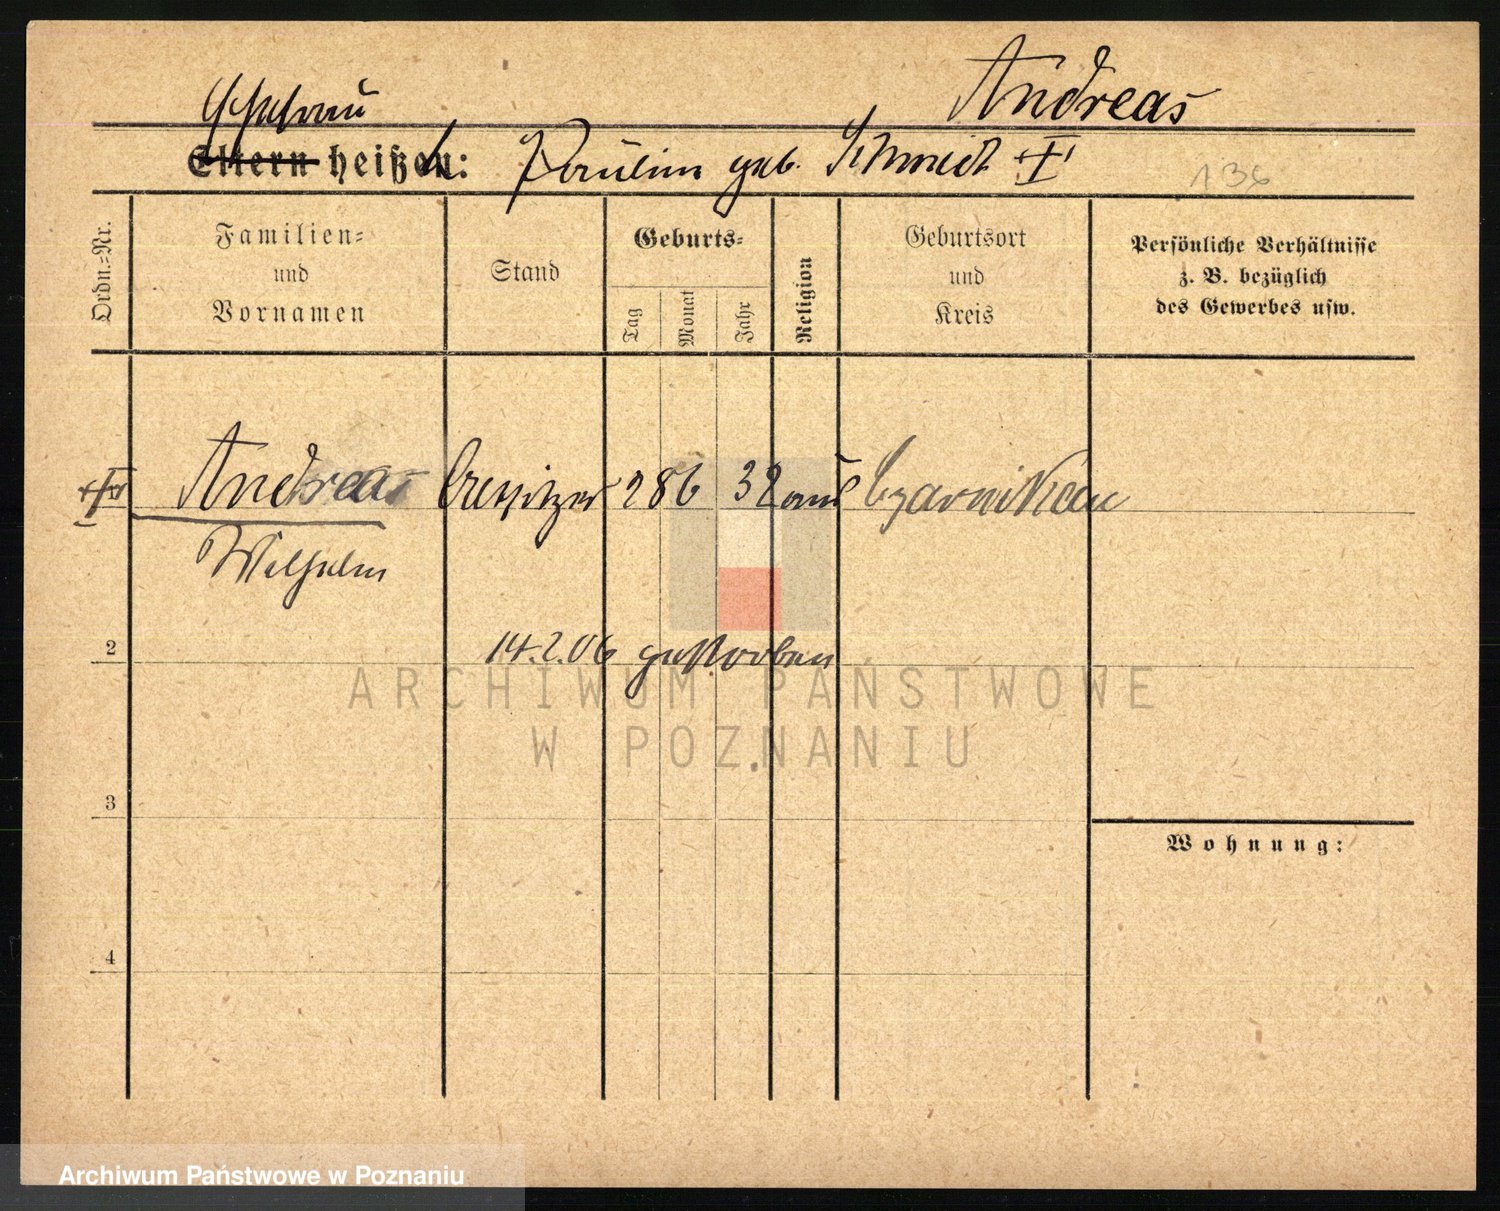 Andreas
Ehefrau
Eltern heißt:
Paulin geb. Schmidt
136
Ordn.-Nr.
Familien-
und
Vornamen
Stand
Geburts-
Tag
Monat
Jahr
Religion
Geburtsort
und
Kreis
Persönliche Verhältnisse
z. B. bezüglich
des Gewerbes usw.
Andreas
28 6 32
Czarnikau
Wilhelm
2
14.2.06 gestorben
ARCHIWUM PAŃSTWOWE
W POZNANIU
3
Wohnung:
4
Archiwum Państwowe w Poznaniu